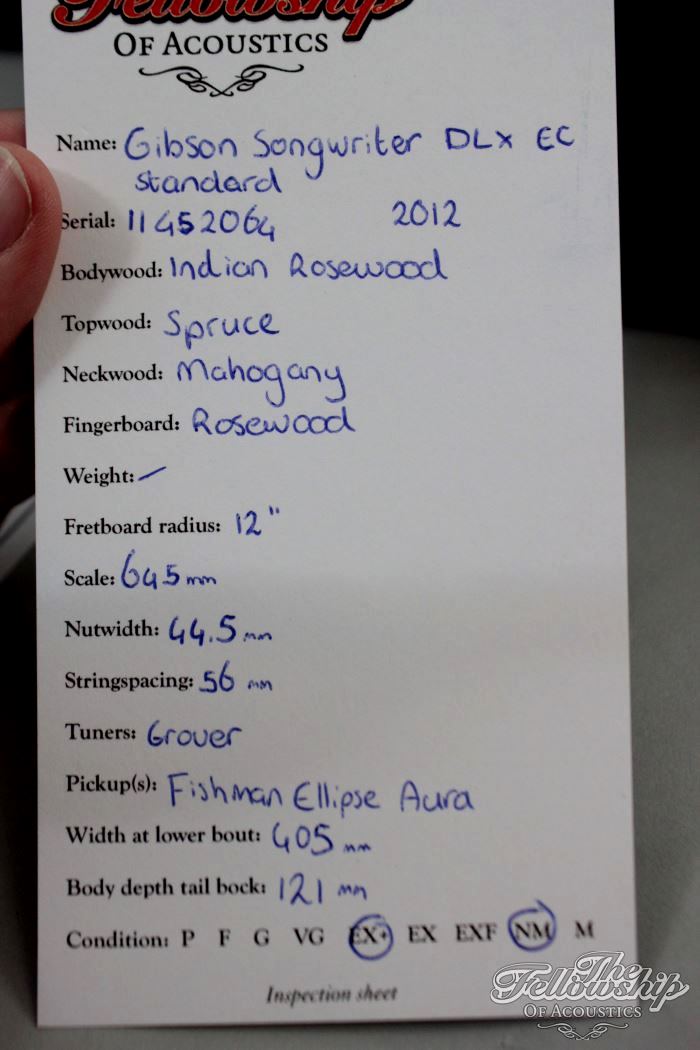 Fellowship
OF ACOUSTICS
Name: Gibson Songwriter DLX EC
Standard
Serial: 11452064 2012
Bodywood: Indian Rosewood
Topwood: Spruce
Neckwood: Mahogany
Fingerboard: Rosewood
Weight: –
Fretboard radius: 12"
Scale: 645 mm
Nutwidth: 44.5 mm
Stringspacing: 56 mm
Tuners: Grover
Pickup(s): Fishman Ellipse Aura
Width at lower bout: 405 mm
Body depth tail bock: 121 mm
Condition: P F G VG EX+ EX EXF NM M
Inspection sheet
The
Fellowship
OF ACOUSTICS